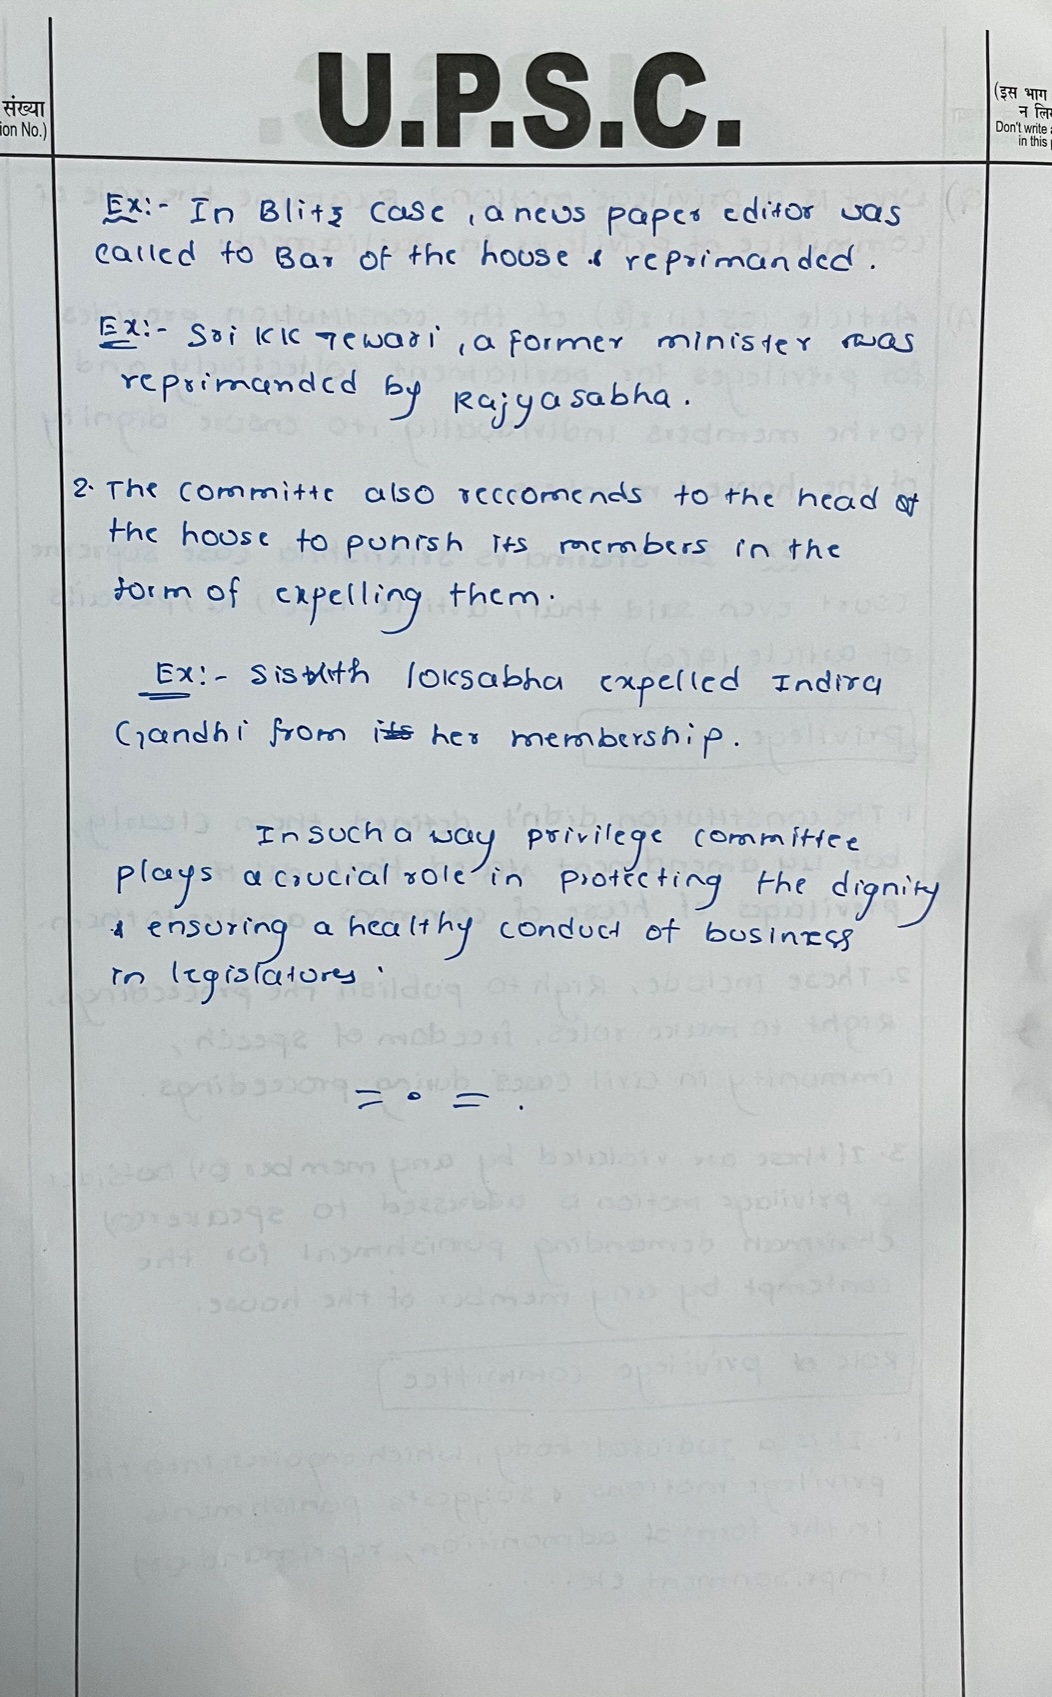 संख्या
ion No.)
U.P.S.C.
(इस भाग
न लि
Don't write
in this
Ex:- In Blitz case, a news paper editor was
called to Bar of the house & reprimanded.
Ex:- Sri KK Tewari, a former minister was
reprimanded by Rajyasabha.
2. The committe also reccomends to the head of
the house to punish its members in the
form of expelling them.
Ex:- Sisxth loksabha expelled Indira
Gandhi from its her membership.
In such a way privilege committee
plays a crucial role in protecting the dignity
& ensuring a healthy conduct of business
in legislatures.
= ० = .